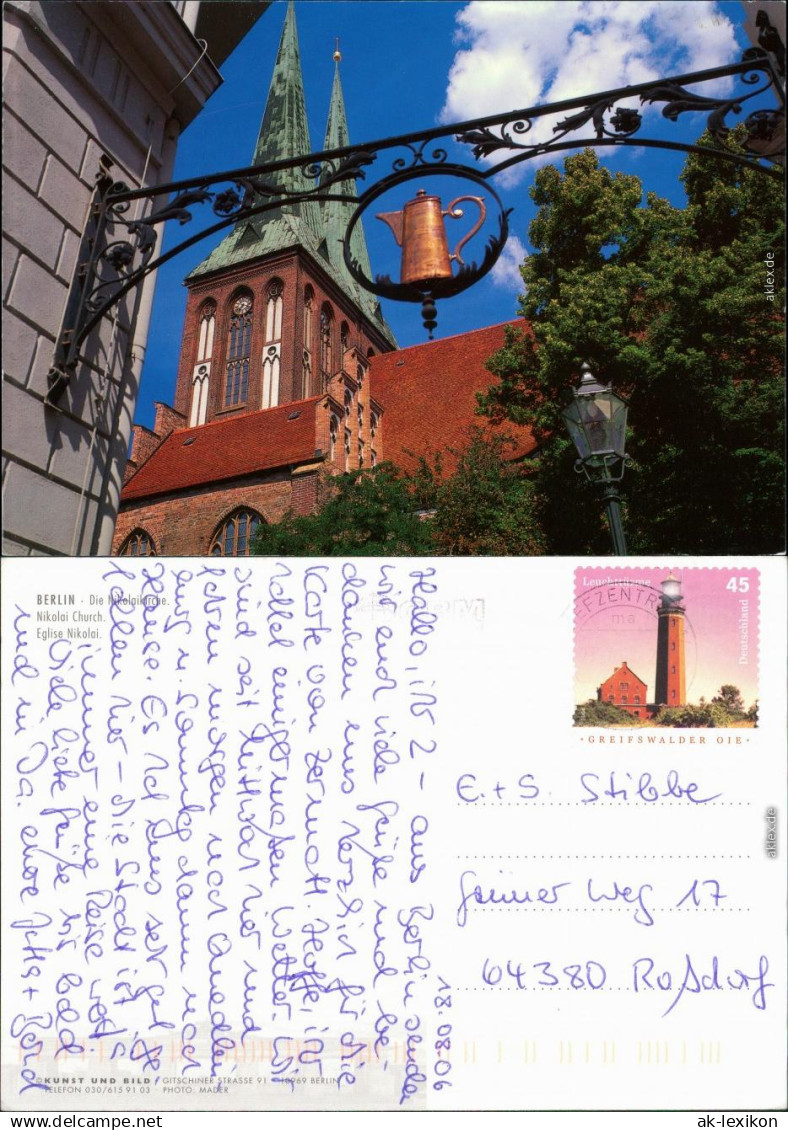 akiex.de
BERLIN · Die Nikolaikirche.
Nikolai Church.
Eglise Nikolai.
18.08.06
Hallo, ihr 2 – aus Berlin senden
wir euch viele Grüße und be-
danken uns herzlich für die
Karte von Zermatt. Hoffe, ihr
hattet einigermaßen Wetter. Wir
sind seit Mittwoch hier und
fahren morgen nach Quedlin-
burg u. Samstag dann nach
Hause. Es hat uns sehr gut ge-
fallen hier – die Stadt ist
immer eine Reise wert.
Viele liebe Grüße bis bald
und in
eure Jutta + Bernd
Leuchttürme
45
Deutschland
· GREIFSWALDER OIE ·
EFZENTR
E. + S. Stibbe
Weg 17
64380 Roßdorf
akiex.de
© KUNST UND BILD, GITSCHINER STRASSE 91 · 10969 BERLIN
TELEFON 030/615 91 03 PHOTO: MADER
ak-lexikon